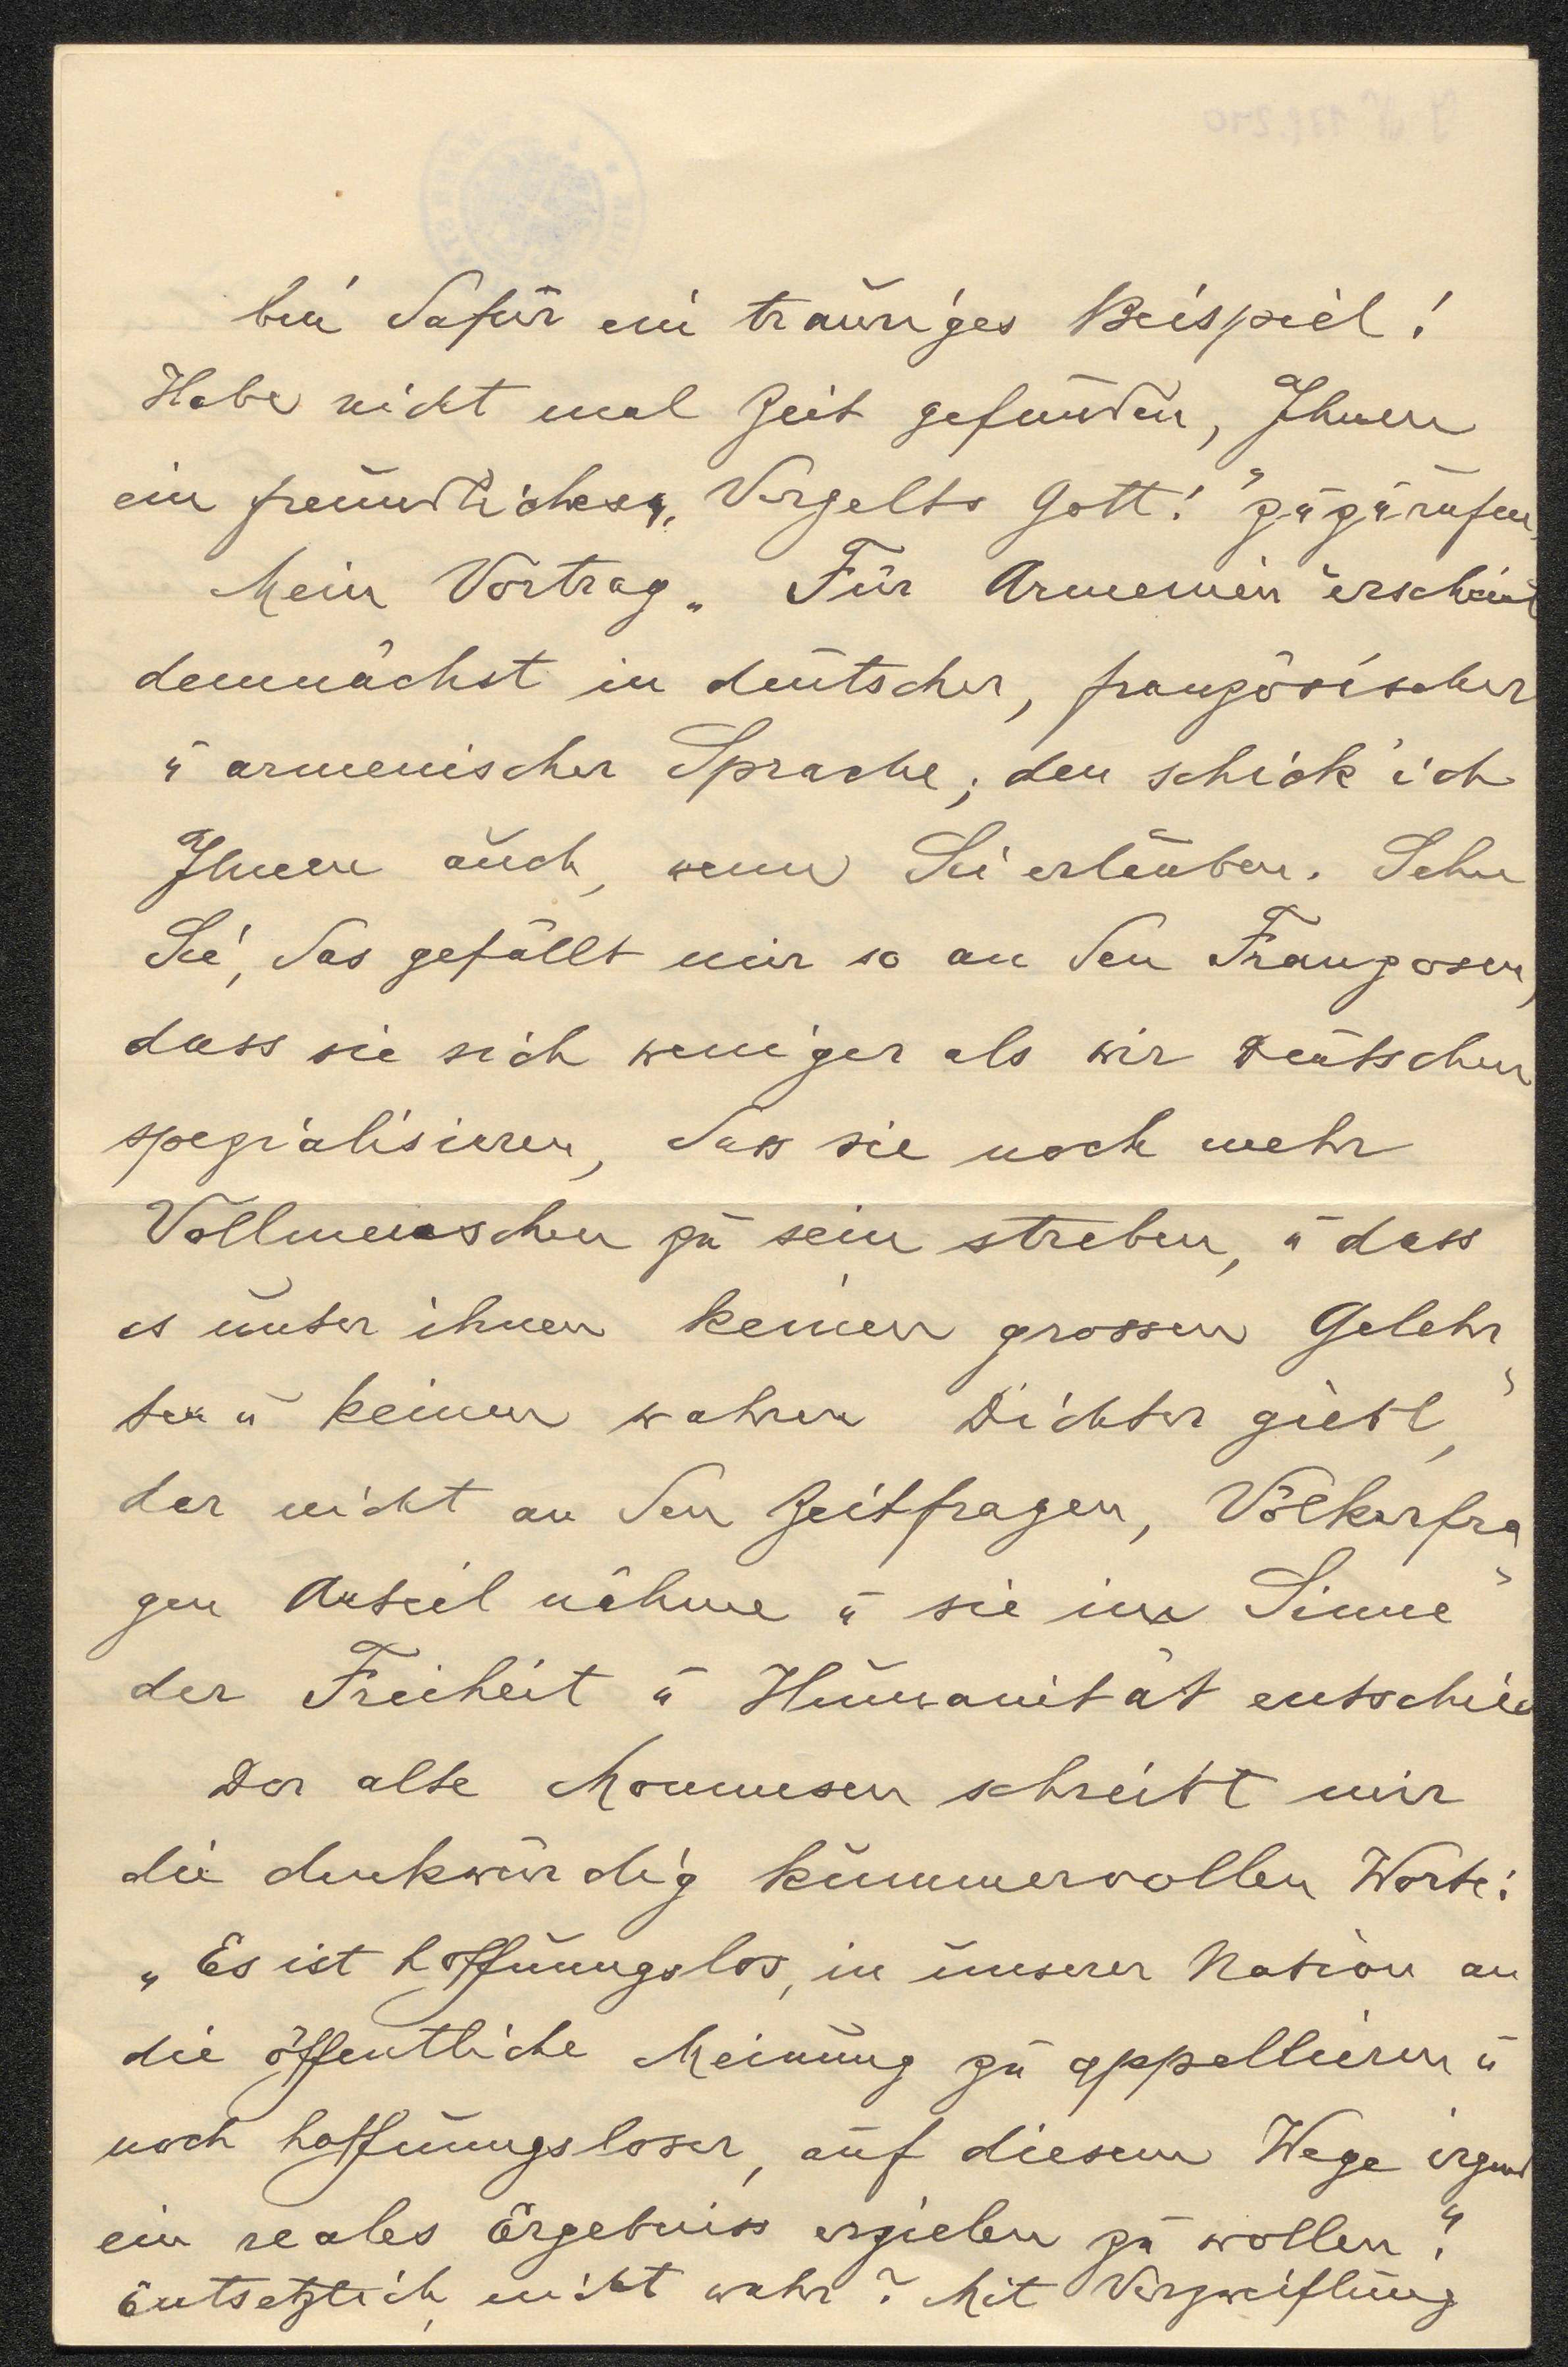 bin dafür ein trauriges Beispiel!
Habe nicht mal Zeit gefunden, Ihnen
ein freundliches „Vergelts Gott!“ zuzurufen.
Mein Vortrag „Für Armenien“ erscheint
demnächst in deutscher, französischer
u armenischer Sprache; den schick' ich
Ihnen auch, wenn Sie erlauben. Sehn
Sie, das gefällt mir so an den Franzosen,
dass sie sich weniger als wir Deutschen
spezialisieren, dass sie noch mehr
Vollmenschen zu sein streben, u dass
es unter ihnen keinen grossen Gelehr
ten u keinen wahren Dichter giebt,
der nicht an den Zeitfragen, Völkerfra
gen Anteil nähme u sie im Sinne
der Freiheit u Humanität entschied
Der alte Mommsen schreibt mir
die denkwürdig kummervollen Worte:
„Es ist hoffnungslos, in unserer Nation an
die öffentliche Meinung zu appellieren u
noch hoffnungsloser, auf diesem Wege irgend
ein reales Ergebniss erzielen zu wollen“!
Entsetzlich, nicht wahr? Mit Verzweiflung